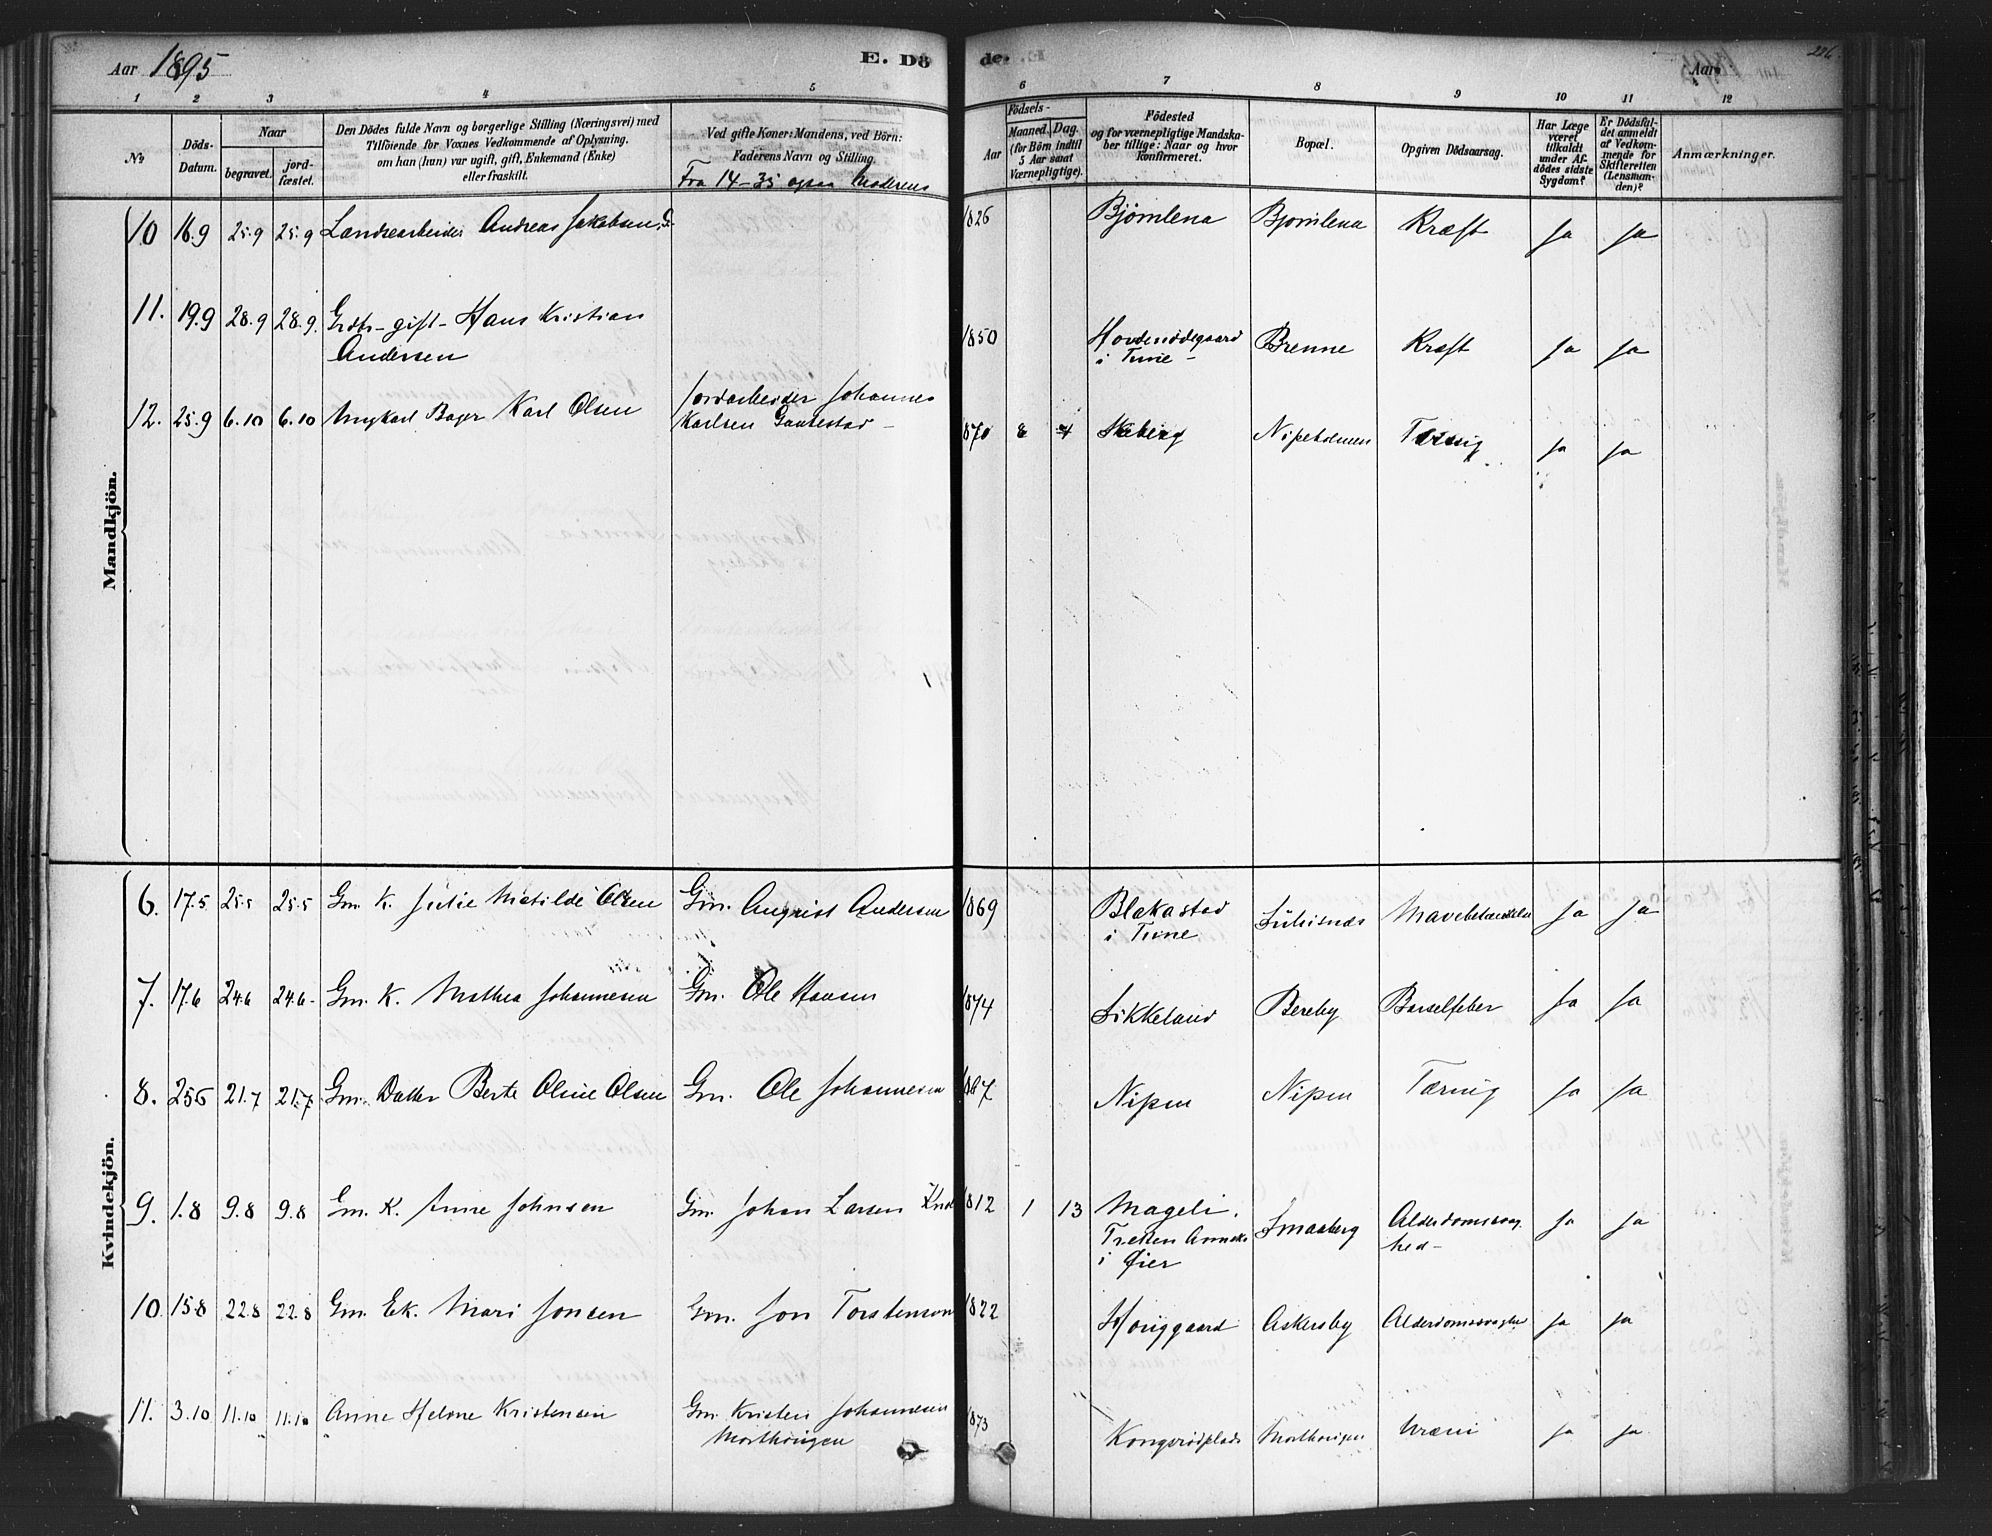 Aar 1895
E. Dö
de.
Aar
226
1 2 3 4 5
6 7 8 9 10 11 12
No
Döds-
Datum.
Naar
begravet.
jord-
fæstet.
Den Dödes fulde Navn og borgerlige Stilling (Næringsvei) med
Tilföiende for Voxnes Vedkommende af Oplysning,
om han (hun) var ugift, gift, Enkemand (Enke)
eller fraskilt.
Ved gifte Koner: Mandens, ved Börn:
Faderens Navn og Stilling.
Fra 14-35 ogsaa Moderens
Födsels-
Aar
Maaned. Dag.
(for Börn indtil
5 Aar samt
Værnepligtige).
Födested
og for værnepligtige Mandska-
ber tillige: Naar og hvor
konfirmeret.
Bopæl.
Opgiven Dödsaarsag.
Har Læge
været
tilkaldt
under Af-
dödes sidste
Sygdom?
Er Dödsfal-
det anmeldt
af Vedkom-
mende for
Skifteretten
(Lensman-
den)?
Anmærkninger.
Mandkjön.
10 16.9 25.9 25.9 Andreas Jakobsen 1826 Björnlena Bjornlena Kræft ja ja
11. 19.9 28.9 28.9. gift - Hans Kristian
Andersen
1850 i Tune - Brenne Kræft ja ja
12. 25.9 6.10 6.10 Ungkarl Bager Karl Olsen
Jordarbeider Johannes
Karlsen
1870 8 4 Skeberg Nipeholmen Tæring ja ja
Kvindekjön.
6. 17.5 25.5 25.5 Gm. K. Julie Matilde Olsen Gm. Anders Andersen 1869 Blakastad
i Tune
ja ja
7. 17.6 24.6 24.6- Gm. K. Mathea Johannesen Gm. Ole Hansen 1874 Sikkeland Bereby Barselfeber ja ja
8. 25.6 21.7 21.7 Gm. Datter Berte Oline Olsen Gm. Ole Johannesen 1887 Nipen Nipen Tæring ja ja
9. 1.8 9.8 9.8 Gm. K. Anne Johnsen Gm. Johan Larsen 1812 1 13 Mageli,
Tretten Anneks
i Øier
Smaaberg
Alderdomssvag
hed -
ja ja
10. 15.8 22.8 22.8 Gm. Ek. Mari Jonsen Gm. Jon Torstensen 1822 Askersby ja ja
11. 3.10 11.10 11.10 Anne Helene Kristensen
Gm. Kristen Johannesen
1873 ja ja